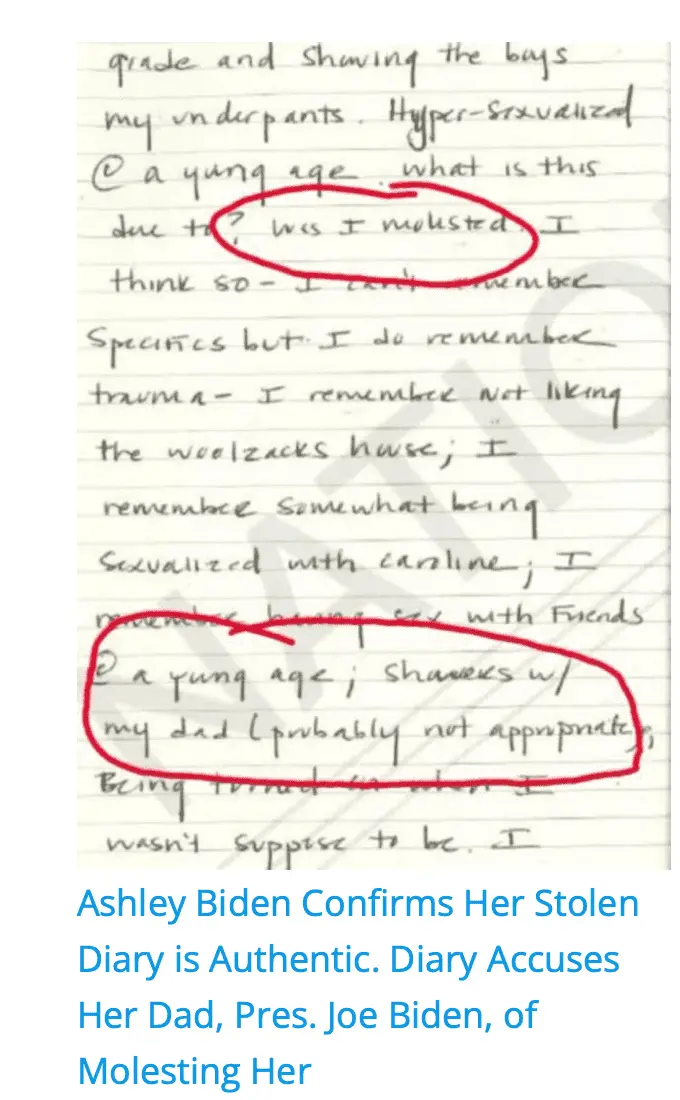 grade and showing the boys
my underpants. Hyper-sexualized
@ a yung age. what is this
due to? Was I molested. I
think so - I can't remember
specifics but I do remember
trauma - I remember not liking
the woolzacks house; I
remember somewhat being
sexualized with caroline; I
remember having sex with friends
@ a yung age; showers w/
my dad (probably not appropriate);
Being turned on when I
wasn't suppose to be. I
NATIO
Ashley Biden Confirms Her Stolen
Diary is Authentic. Diary Accuses
Her Dad, Pres. Joe Biden, of
Molesting Her